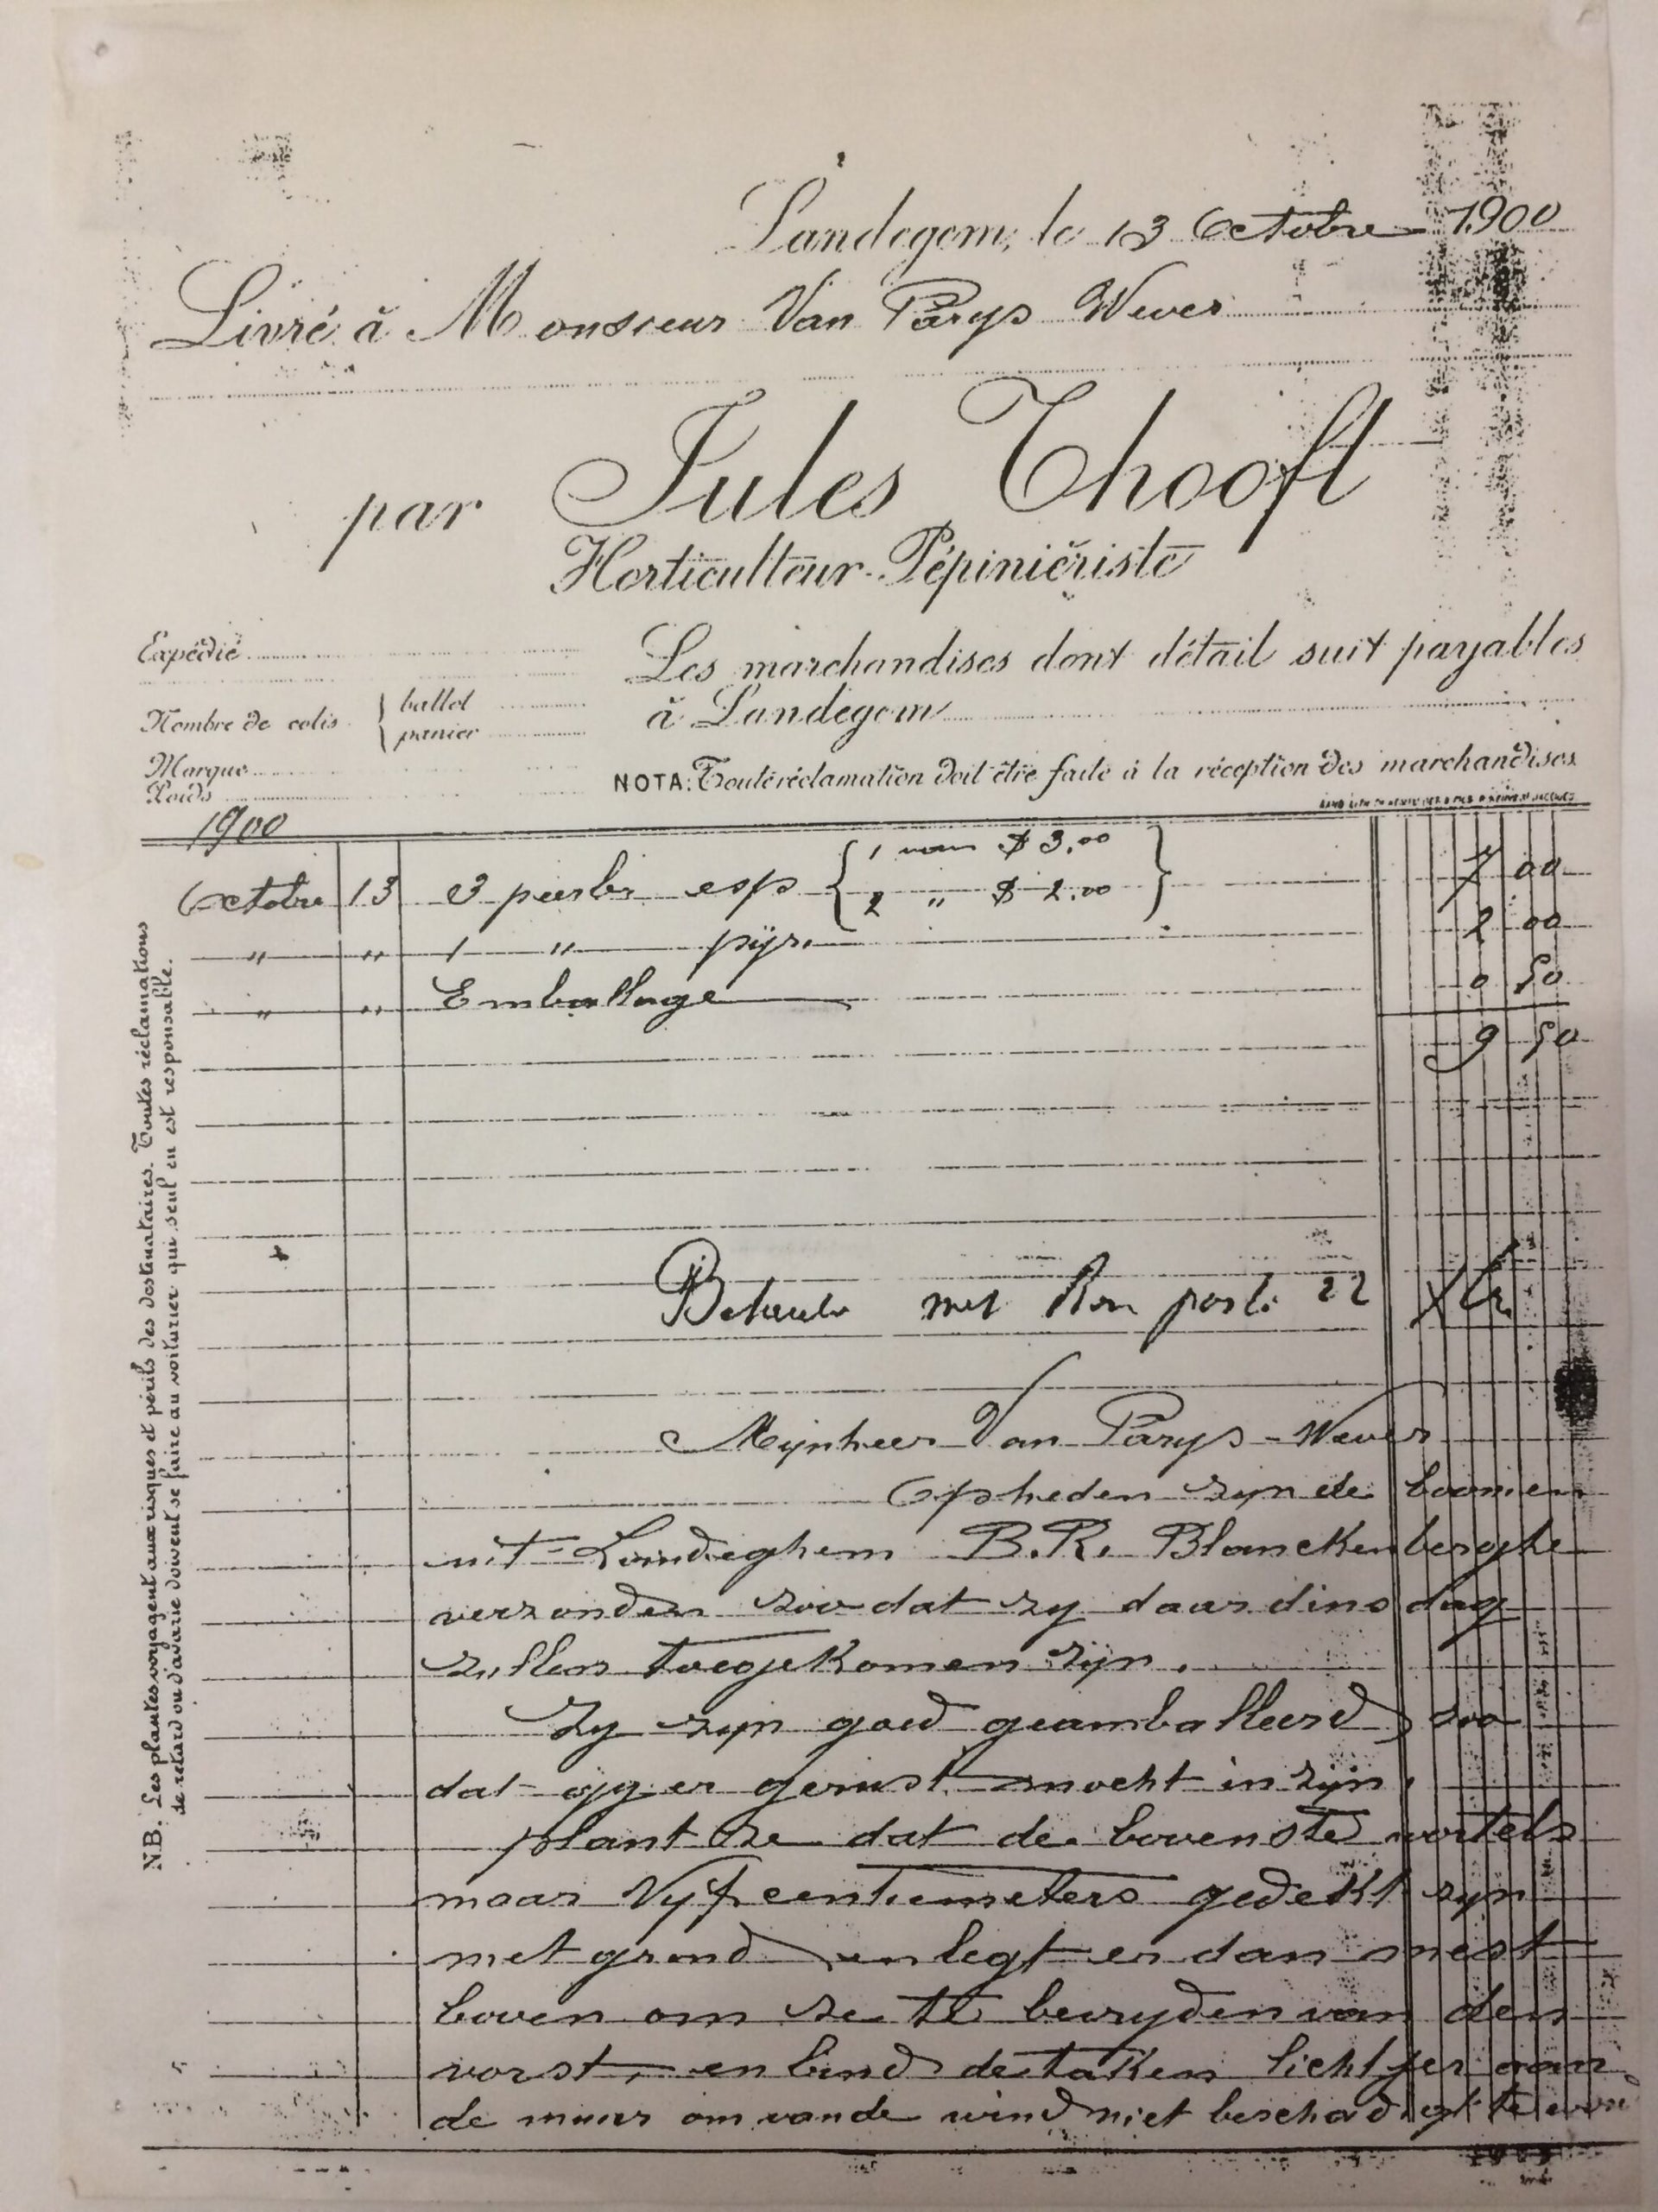 Landegem, le 13 Octobre 1900
Livré à Monsieur Van Parys Wever
par Jules Thooft
Horticulteur-Pépiniériste
Expédié
Nombre de colis { ballot
panier
Marque
Poids
Les marchandises dont détail suit payables
à Landegem
NOTA: Toute réclamation doit être faite à la réception des marchandises
1900
Octobre 13 3 peerl. esp { 1 van $ 3.00
2 " $ 2.00 } 7 00
" " 1 " pyr. 2 00
" " Emballage 0 50
9 50
N.B. Les plantes voyagent aux risques et périls des destinataires. Toutes réclamations
de retard ou d'avarie doivent se faire au voiturier qui seul en est responsable.
met Bon post 22
Mijnheer Van Parys-Wever
Opheden zyn de boomen
uit Landeghem B.R. Blanckenberghe
verzonden zoo dat zy daar dinsdag
zullen toegekomen zijn.
Zy zijn goed geamballeerd, zoo
dat gy er gerust moeht in zijn,
plant ze dat de bovenste wortels
maar Vyf centiemeters gedekt zyn
met grond en legt er dan mest
boven om ze te bevryden van den
vorst, en bind de takken licht jes aan
de muur om van de wind niet beschadigt te